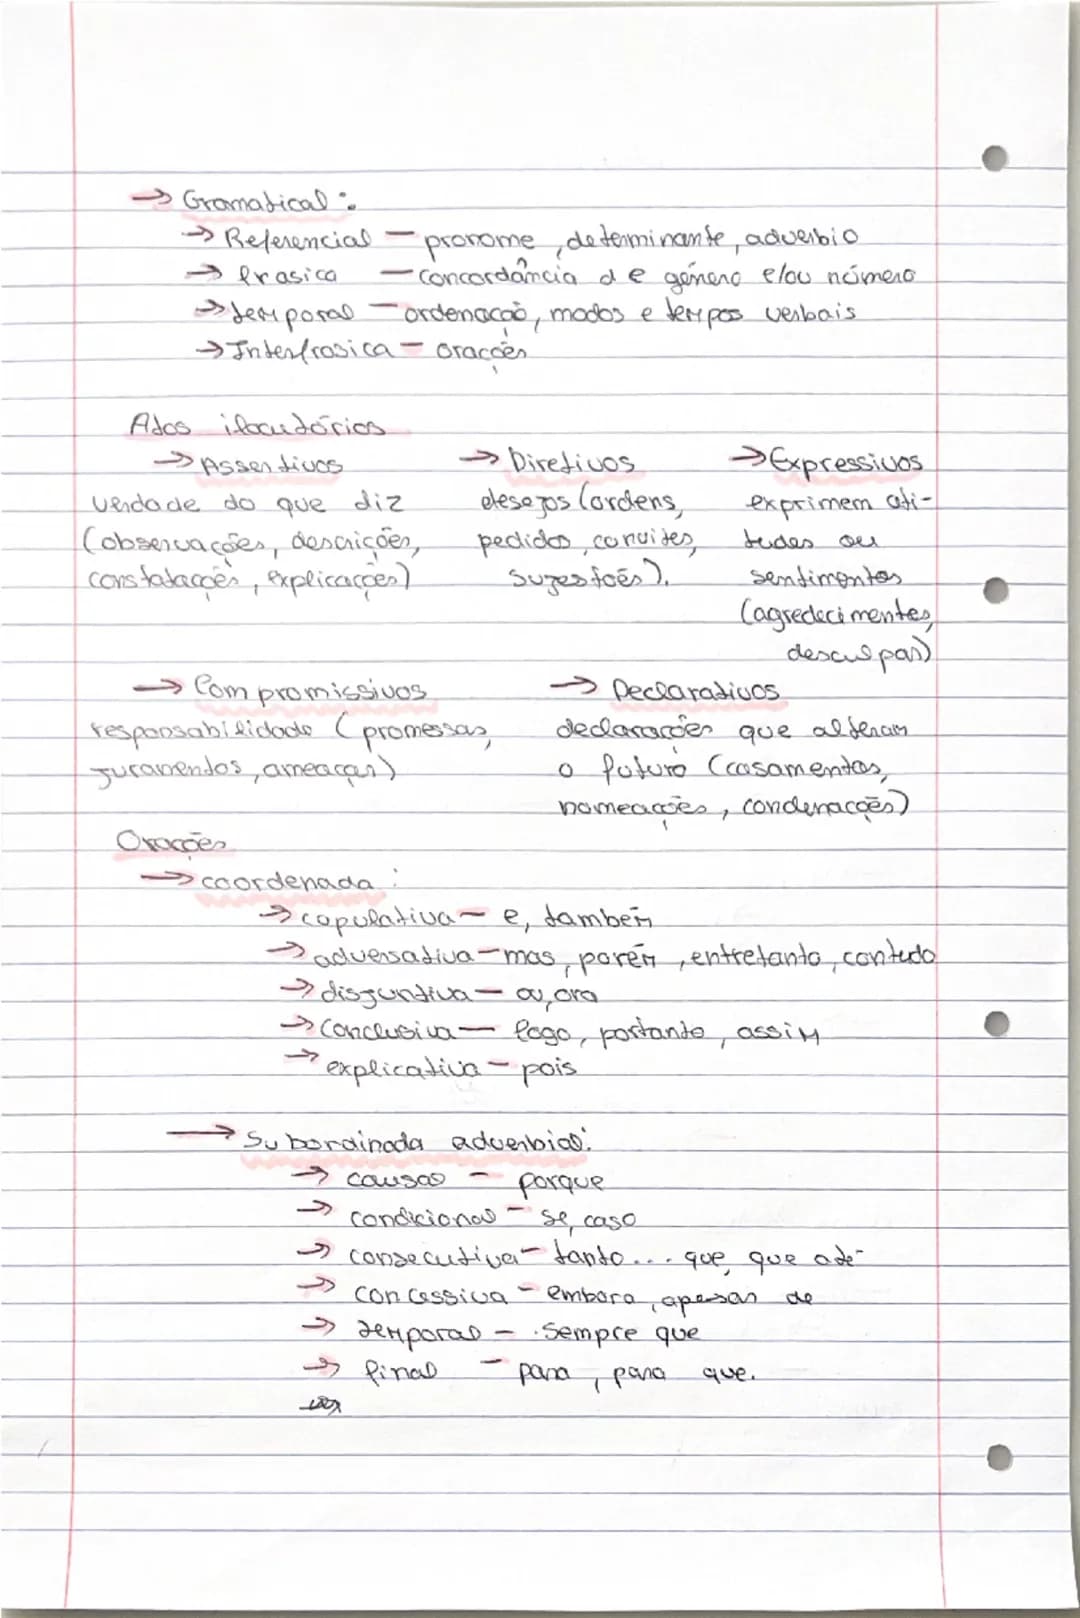 → Gramatical :
→ Referencial – pronome , determinante , adverbio
→ frasica – concordância de género e/ou número
→ temporal – ordenação, modos e tempos verbais
→ Interfrasica – orações
Atos ilocutórios
→ Assertivos
verdade do que diz
(observações, descrições,
constatações , explicações)
→ Diretivos
desejos (ordens,
pedidos , convites,
sugestoẽs ).
→ Expressivos
exprimem ati-
tudes ou
sentimentos
(agredecimentes,
desculpas)
→ Compromissivos
responsabilidade ( promessas,
juramentos , ameaças)
→ Declarativos
declarações que alteram
o futuro (casamentos,
nomeações , condenações)
Orações
→ coordenada :
→ copulativa – e, também
→ adversativa – mas, porém , entretanto , contudo
→ disjuntiva – ou, ora
→ Conclusiva – logo , portanto , assim
→ explicativa – pois
→ Subordinada adverbial:
→ causal – porque
→ condicional – se, caso
→ consecutiva – tanto ... que, que até
→ concessiva – embora , apesar de
→ temporal – sempre que
→ final – para , para que.